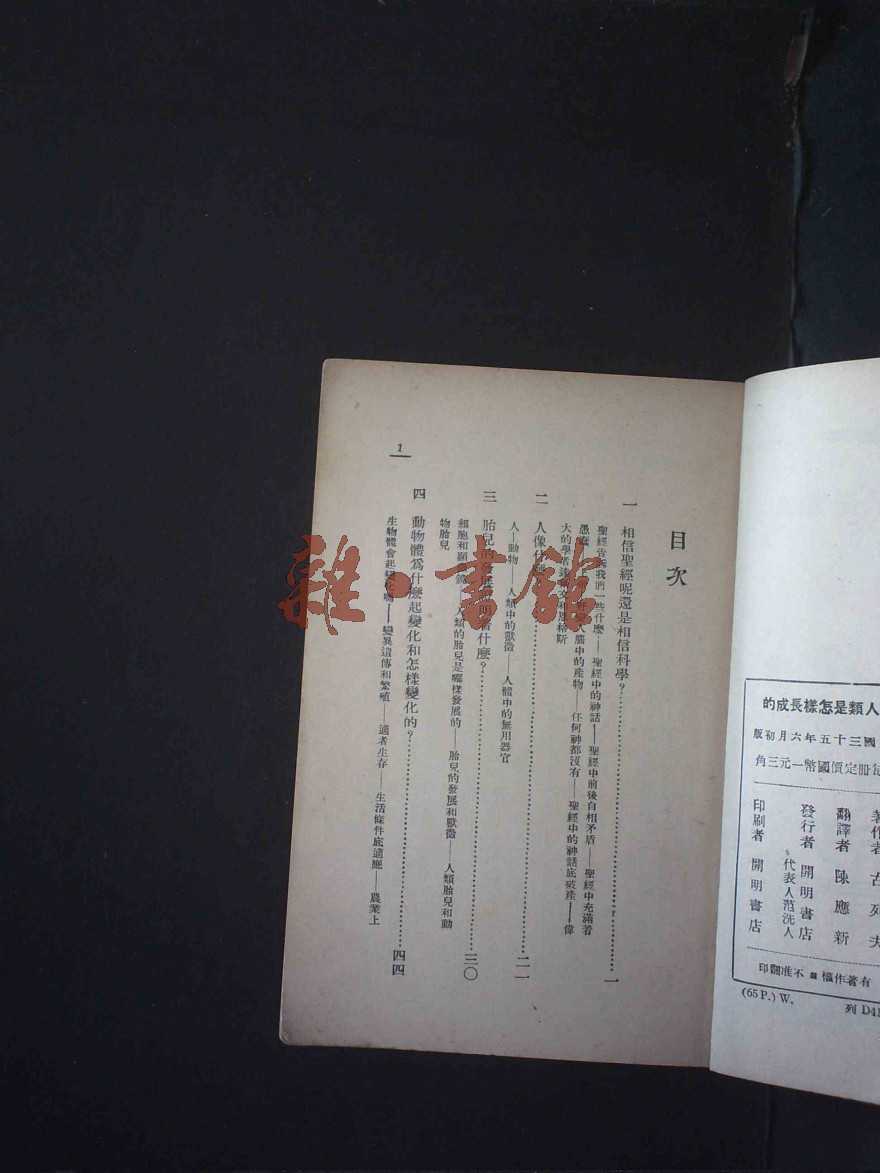 目次
一 相信聖經呢還是相信科學？……一
聖經告訴我們一些什麼——聖經中的神話——聖經中前後自相矛盾——聖經中充滿着
人腦中的產物——任何神都沒有——聖經中的神話底破產——偉
大的學者達爾文和恩格斯
二 人像什麼……二一
人—動物——人類中的獸徵——人體中的無用器官
三 胎兒的發展證明著什麼？……三〇
細胞和顯微鏡——人類的胎兒是哪樣發展的——胎兒的發展和獸徵——人類胎兒和動
物胎兒
四 動物體爲什麼起變化和怎樣變化的？……四四
生物體會起變化嗎——變異遺傳和繁殖——適者生存——生活條件底適應——農業上
1
人類是怎樣長成的
國三十五年六月初版
每冊定價國幣一元三角
著作者 古列夫
翻譯者 陳應新
發行者 開明書店
代表人范洗人
印刷者 開明書店
有著作權 不准翻印
(65 P.) W.
列 D41
雜·書館